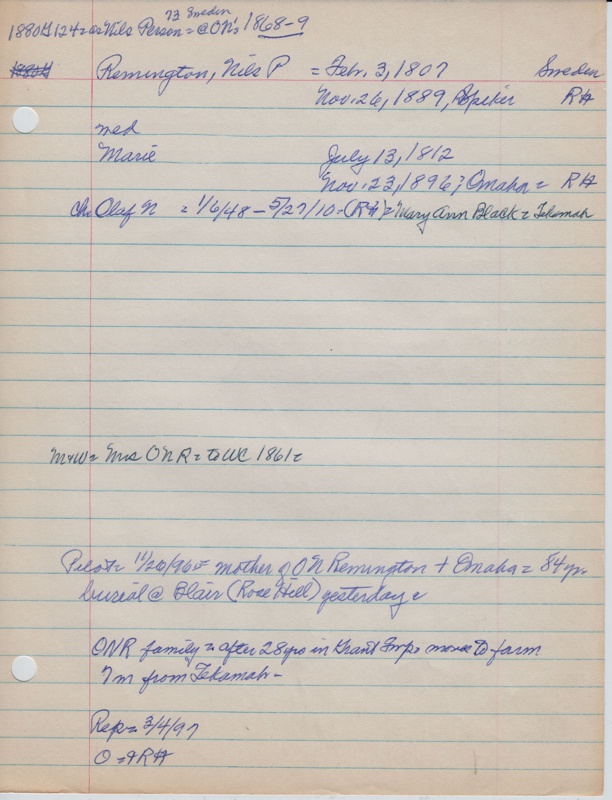 73 Sweden
1880 124 = as Nils Person = @ ON's 1868-9
1880
Remington, Nils P = Feb. 3, 1807 Sweden
Nov. 26, 1889, Spiker RH
med
Marie July 13, 1812
Nov. 23, 1896; Omaha = RH
Ch: Olaf N = 1/6/48 - 5/27/10 - (RH) = Mary Ann Black = Tekamah
M+W = Mrs ONR = to WC 1861 =
Pilot = 11/26/96 = mother of ON Remington + Omaha = 84 yr.
burial @ Blair (Rose Hill) yesterday =
ONR family = after 28 yrs in Grant Twp. moves to farm
7m from Tekamah -
Rep = 3/4/97
O = + RH